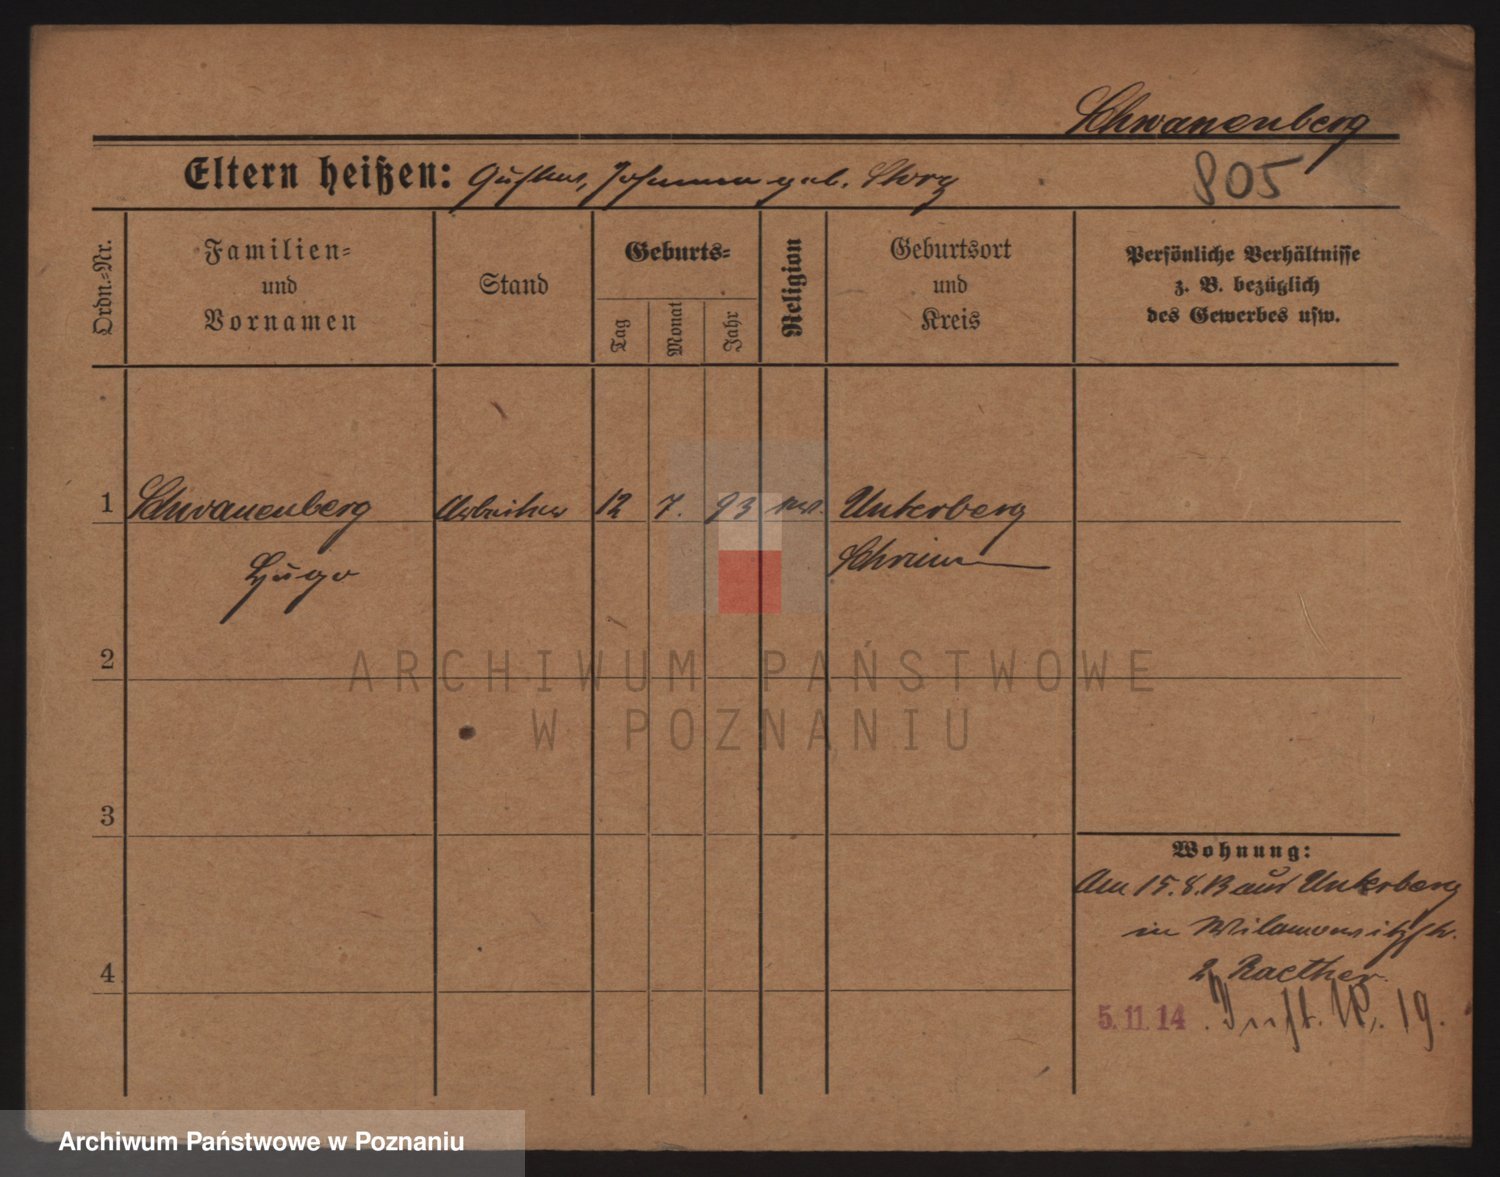 Schwanenberg
Eltern heißen: Gustav, Johanna geb. Storz
805
Ordn.=Nr.
Familien=
und
Vornamen
Stand
Geburts=
Tag
Monat
Jahr
Religion
Geburtsort
und
Kreis
Persönliche Verhältnisse
z. B. bezüglich
des Gewerbes usw.
1 Schwanenberg Arbeiter 12 7. 93 Unterberg
Hugo
Schrimm
2
3
4
ARCHIWUM PAŃSTWOWE
W POZNANIU
Wohnung:
Am 15.8.13 aus Unterberg
in Wilamowitzstr.
2 Raether
5.11.14 Inft. 19.
Archiwum Państwowe w Poznaniu